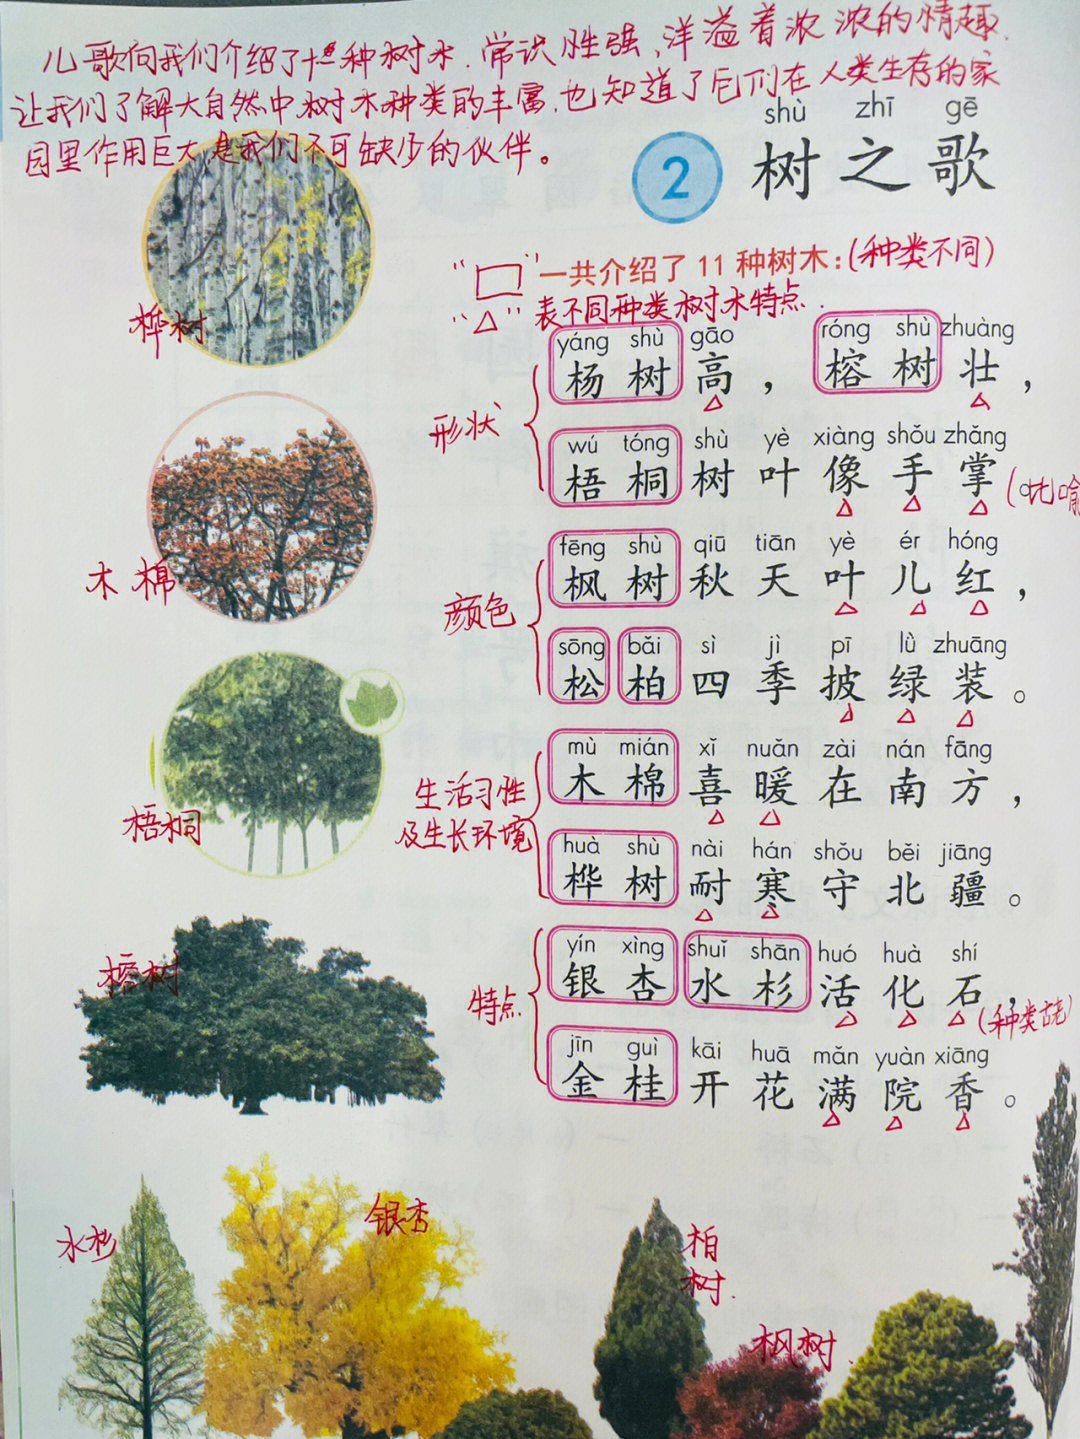 儿歌向我们介绍了十一种树木,常识性强,洋溢着浓浓的情趣.
让我们了解大自然中树木种类的丰富,也知道了它们在人类生存的家
园里作用巨大,是我们不可缺少的伙伴。
shù zhī gē
2 树之歌
“□”一共介绍了 11 种树木:(种类不同)
“△”表不同种类树木特点.
桦树
yáng shù gāo róng shù zhuàng
杨树高,榕树壮,
形状
wú tóng shù yè xiàng shǒu zhǎng
梧桐树叶像手掌。(比喻
fēng shù qiū tiān yè ér hóng
枫树秋天叶儿红,
木棉
颜色
sōng bǎi sì jì pī lǜ zhuāng
松柏四季披绿装。
mù mián xǐ nuǎn zài nán fāng
木棉喜暖在南方,
生活习性
及生长环境
梧桐
huà shù nài hán shǒu běi jiāng
桦树耐寒守北疆。
yín xìng shuǐ shān huó huà shí
银杏水杉活化石,
(种类古老)
特点
榕树
jīn guì kāi huā mǎn yuàn xiāng
金桂开花满院香。
水杉
银杏
柏
树.
枫树.